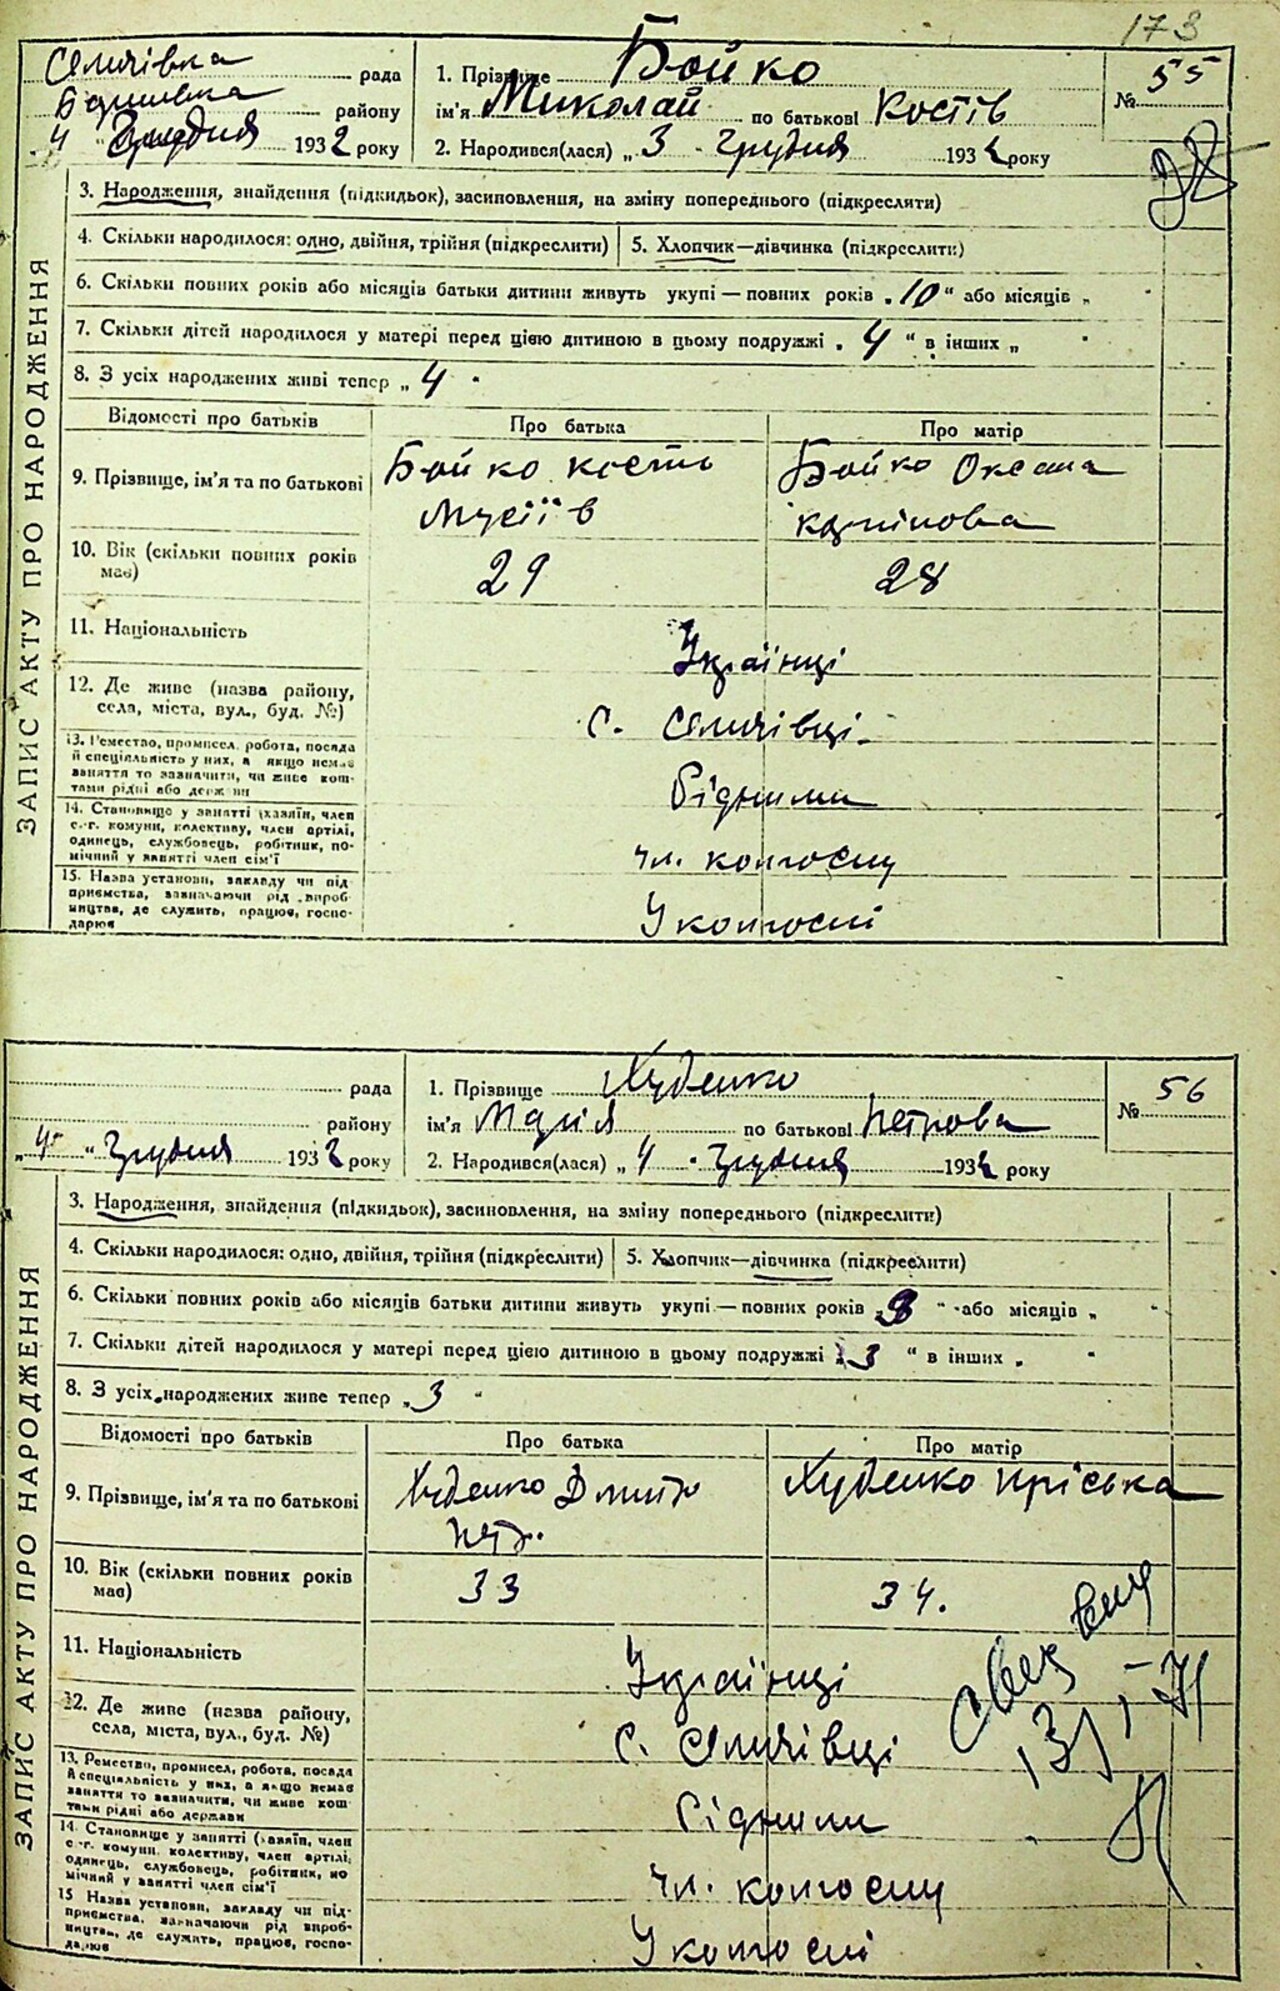 173
Семчівка рада
району
4 Грудня 1932 року
1. Прізвище Бойко
ім'я Миколай по батькові Костів
2. Народився(лася) „ 3 " Грудня 1932 року
№ 55
ЗАПИС АКТУ ПРО НАРОДЖЕННЯ
3. Народження, знайдення (підкидьок), засиновлення, на зміну попереднього (підкреслити)
4. Скільки народилося: одно, двійня, трійня (підкреслити) 5. Хлопчик—дівчинка (підкреслити)
6. Скільки повних років або місяців батьки дитини живуть укупі — повних років „10" або місяців „ "
7. Скільки дітей народилося у матері перед цією дитиною в цьому подружжі „ 4 " в інших „ "
8. З усіх народжених живі тепер „ 4 "
Відомості про батьків Про батька Про матір
9. Прізвище, ім'я та по батькові Бойко Кость Бойко Оксана
Мусіїв
10. Вік (скільки повних років має) 29 28
11. Національність Українці
12. Де живе (назва району, села, міста, вул., буд. №) с. Семчівці
13. Ремество, промисел, робота, посада й спеціальність у них, а якщо немає заняття то зазначити, чи живе коштами рідні або держави Рідними
14. Становище у занятті (хазяїн, член с.-г. комуни, колективу, член артілі, одинець, службовець, робітник, помічний у занятті член сім'ї чл. колгоспу
15. Назва установи, закладу чи підприємства, зазначаючи рід виробництва, де служить, працює, господарює У колгоспі
рада
району
„ 4 " Грудня 1932 року
1. Прізвище Худенко
ім'я Марія по батькові Петрова
2. Народився(лася) „ 4 " Грудня 1932 року
№ 56
ЗАПИС АКТУ ПРО НАРОДЖЕННЯ
3. Народження, знайдення (підкидьок), засиновлення, на зміну попереднього (підкреслити)
4. Скільки народилося: одно, двійня, трійня (підкреслити) 5. Хлопчик—дівчинка (підкреслити)
6. Скільки повних років або місяців батьки дитини живуть укупі — повних років „ " або місяців „ "
7. Скільки дітей народилося у матері перед цією дитиною в цьому подружжі „ 3 " в інших „ "
8. З усіх народжених живе тепер „ 3 "
Відомості про батьків Про батька Про матір
9. Прізвище, ім'я та по батькові Худенко Худенко Пріська
10. Вік (скільки повних років має) 33 34.
11. Національність Українці
12. Де живе (назва району, села, міста, вул., буд. №) с. Семчівці
13. Ремество, промисел, робота, посада й спеціальність у них, а якщо немає заняття то зазначити, чи живе коштами рідні або держави Рідними
14. Становище у занятті (хазяїн, член с.-г. комуни, колективу, член артілі, одинець, службовець, робітник, помічний у занятті член сім'ї чл. колгоспу
15 Назва установи, закладу чи підприємства, зазначаючи рід виробництва, де служить, працює, господарює У колгоспі